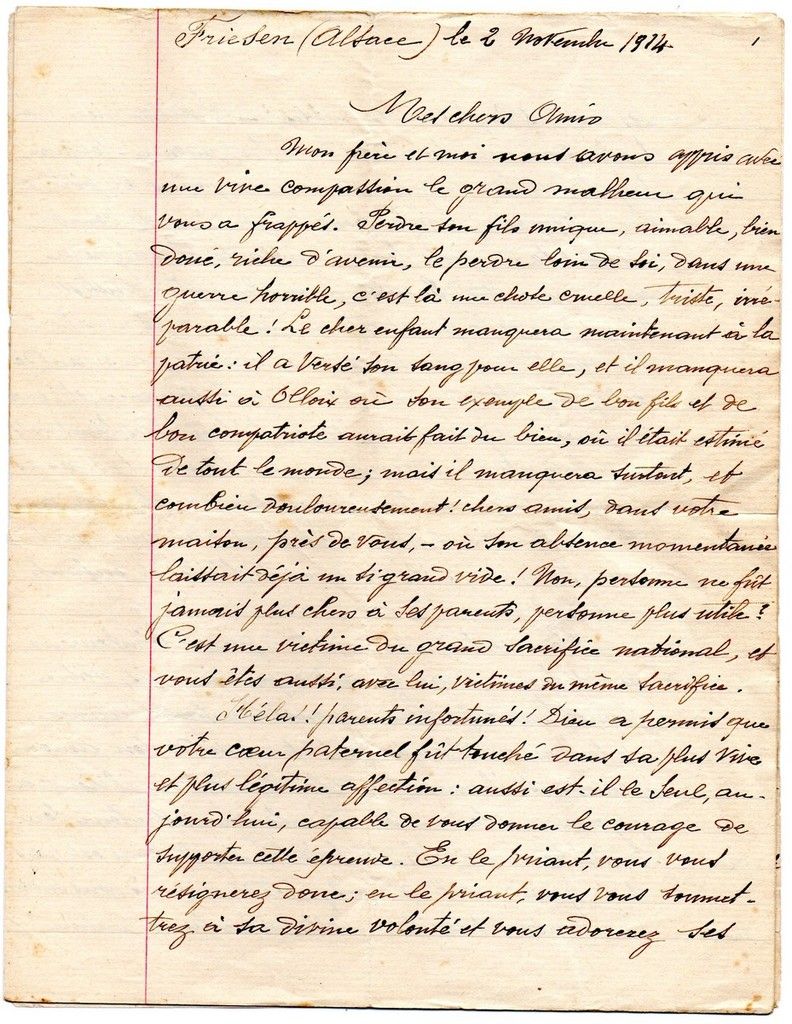 Friesen (Alsace) le 2 Novembre 1914 1
Mes chers Amis
Mon frère et moi nous avons appris avec
une vive compassion le grand malheur qui
vous a frappés. Perdre son fils unique, aimable, bien
doué, riche d'avenir, le perdre loin de soi, dans une
guerre horrible, c'est là une chose cruelle, triste, irré-
parable ! Le cher enfant manquera maintenant à la
patrie : il a versé son sang pour elle, et il manquera
aussi à Olloix où son exemple de bon fils et de
bon compatriote aurait fait du bien, où il était estimé
de tout le monde ; mais il manquera surtout, et
combien douloureusement ! chers amis, dans votre
maison, près de vous, - où son absence momentanée
laissait déjà un si grand vide ! Non, personne ne fût
jamais plus chers à ses parents, personne plus utile ?
C'est une victime du grand sacrifice national, et
vous êtes aussi, avec lui, victimes du même sacrifice.
Hélas ! parents infortunés ! Dieu a permis que
votre cœur paternel fût touché dans sa plus vive
et plus légitime affection : aussi est-il le seul, au-
jourd'hui, capable de vous donner le courage de
supporter cette épreuve. En le priant, vous vous
résignerez donc ; en le priant, vous vous soumet-
trez à sa divine volonté et vous adorerez ses